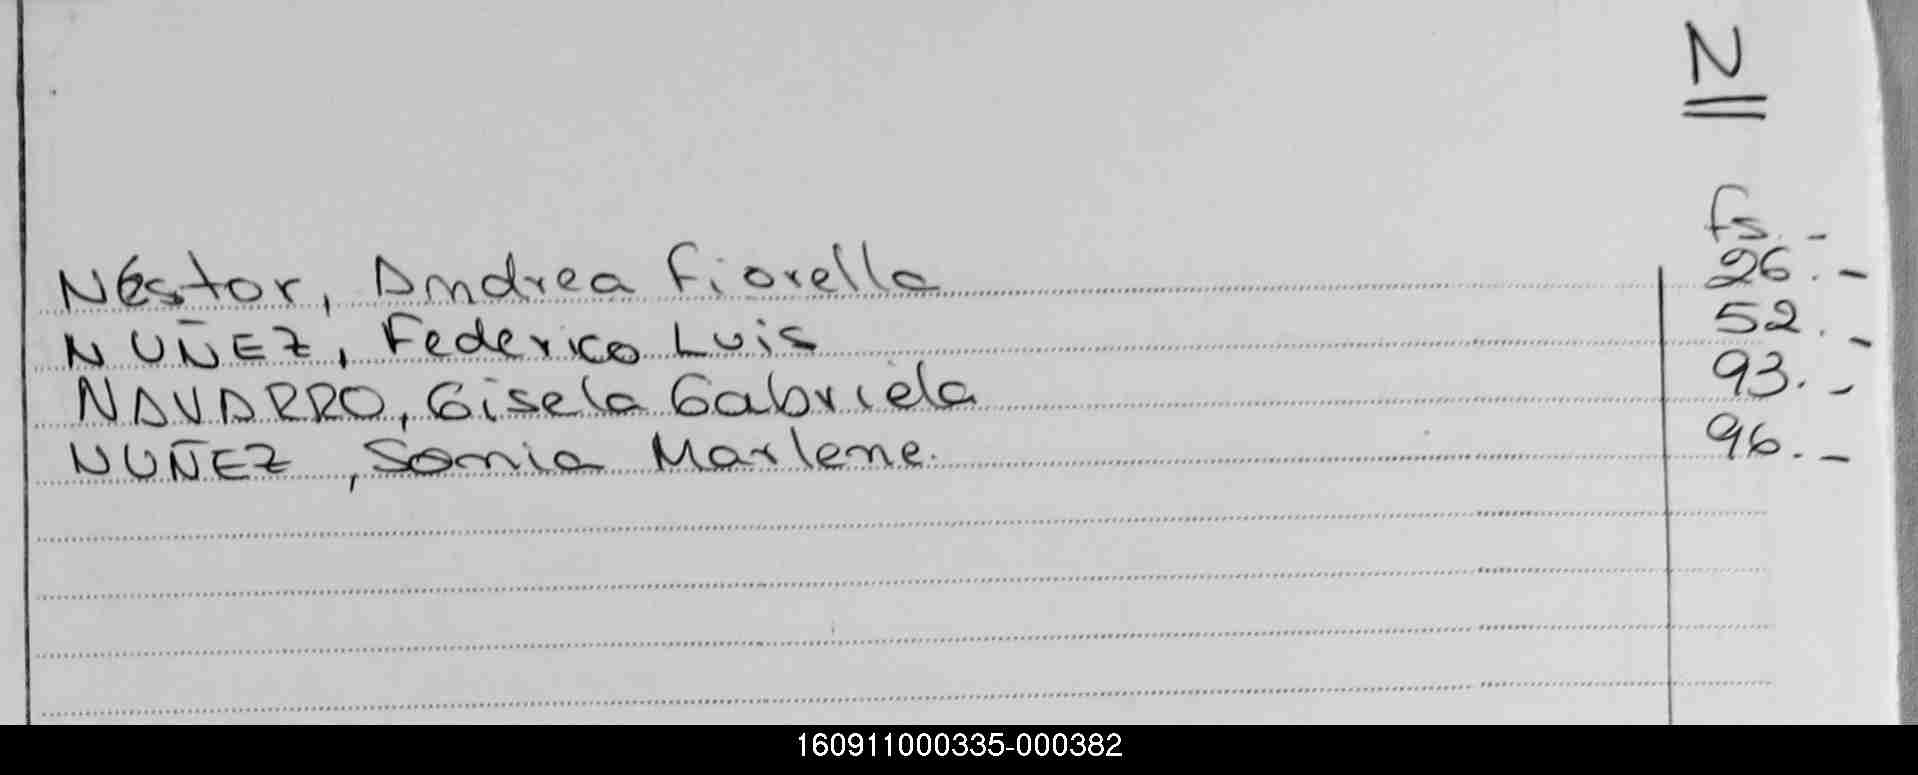 N
fs.-
Néstor, Andrea Fiorella 26.-
NUÑEZ, Federico Luis 52.-
NAVARRO, Gisela Gabriela 93.-
NUÑEZ, Sonia Marlene. 96.-
160911000335-000382